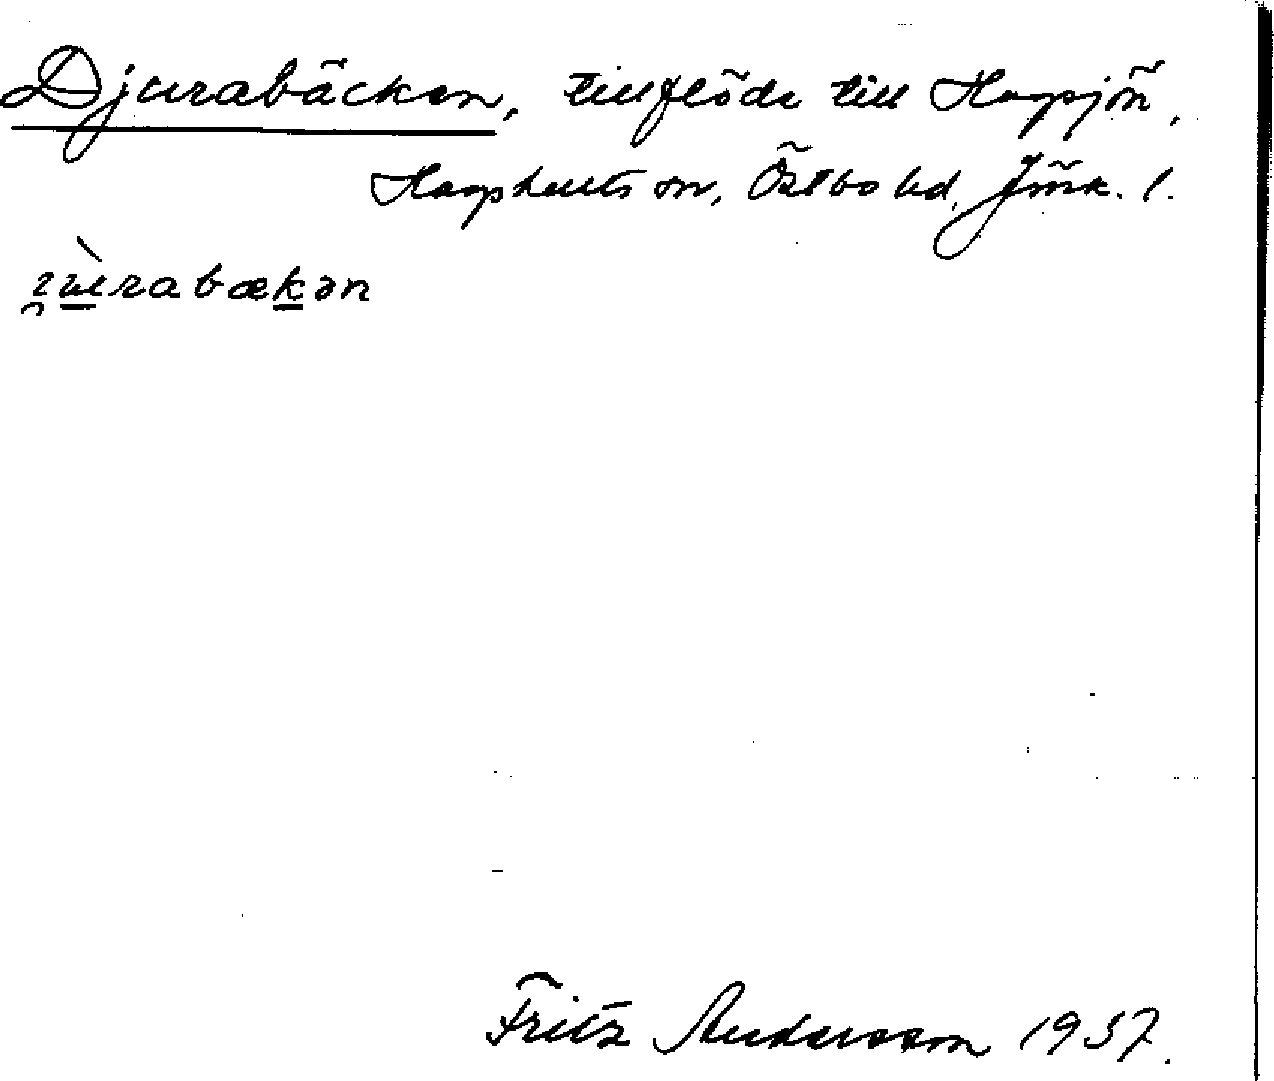 Djurabäcken, tillflöde till Hagsjön,
Hagshults sn, Östbo hd, Jönk. l.
Fritz Andersson 1937.